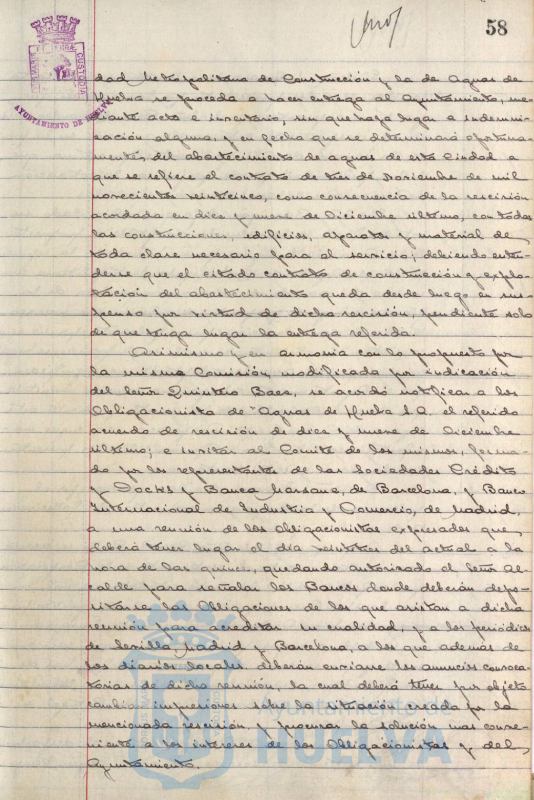 58
AYUNTAMIENTO DE HUELVA
CUSTODIA
dad Metropolitana de Construcción y la de Aguas de
Huelva se proceda a hacer entrega al Ayuntamiento, me-
diante acta e inventario, sin que haya lugar a indemni-
zación alguna, y en fecha que se determinará oportuna-
mente, del abastecimiento de aguas de esta Ciudad a
que se refiere el contrato de tres de Noviembre de mil
novecientos veinticinco, como consecuencia de la rescisión
acordada en diez y nueve de Diciembre último, con todas
las construcciones, edificios, aparatos y material de
toda clase necesario para al servicio; debiendo enten-
derse que el citado contrato de construcción y explo-
tación del abastecimiento queda desde luego en sus-
penso por virtud de dicha rescisión, pendiente solo
de que tenga lugar la entrega referida.
Asimismo y en armonia con lo propuesto por
la misma Comisión, modificada por indicación
del Señor Quintero Baez, se acordó notificar a los
Obligacionista de "Aguas de Huelva S.A. el referido
acuerdo de rescisión de diez y nueve de Diciembre
último; e invitar al Comité de los mismos, forma-
do por los representantes de las Sociedades Crédito
y Docks y Banca Marsans, de Barcelona, y Banco
Internacional de Industria y Comercio, de Madrid,
a una reunión de los Obligacionistas expresados que
deberá tener lugar el día veintitres del actual a la
hora de las quince, quedando autorizado el Señor Al-
calde para señalar los Bancos donde deberán depo-
sitarse las Obligaciones de los que asistan a dicha
reunión para acreditar su cualidad, y a los periódicos
de Sevilla, Madrid y Barcelona, a los que además de
los diarios locales deberán enviarse los anuncios convoca-
torias de dicha reunión, la cual deberá tener por objeto
cambiar impresiones sobre la situación creada por la
mencionada rescisión y procurar la solución mas conve-
niente a los intereses de los Obligacionistas y del
Ayuntamiento.
Ayuntamiento de
HUELVA